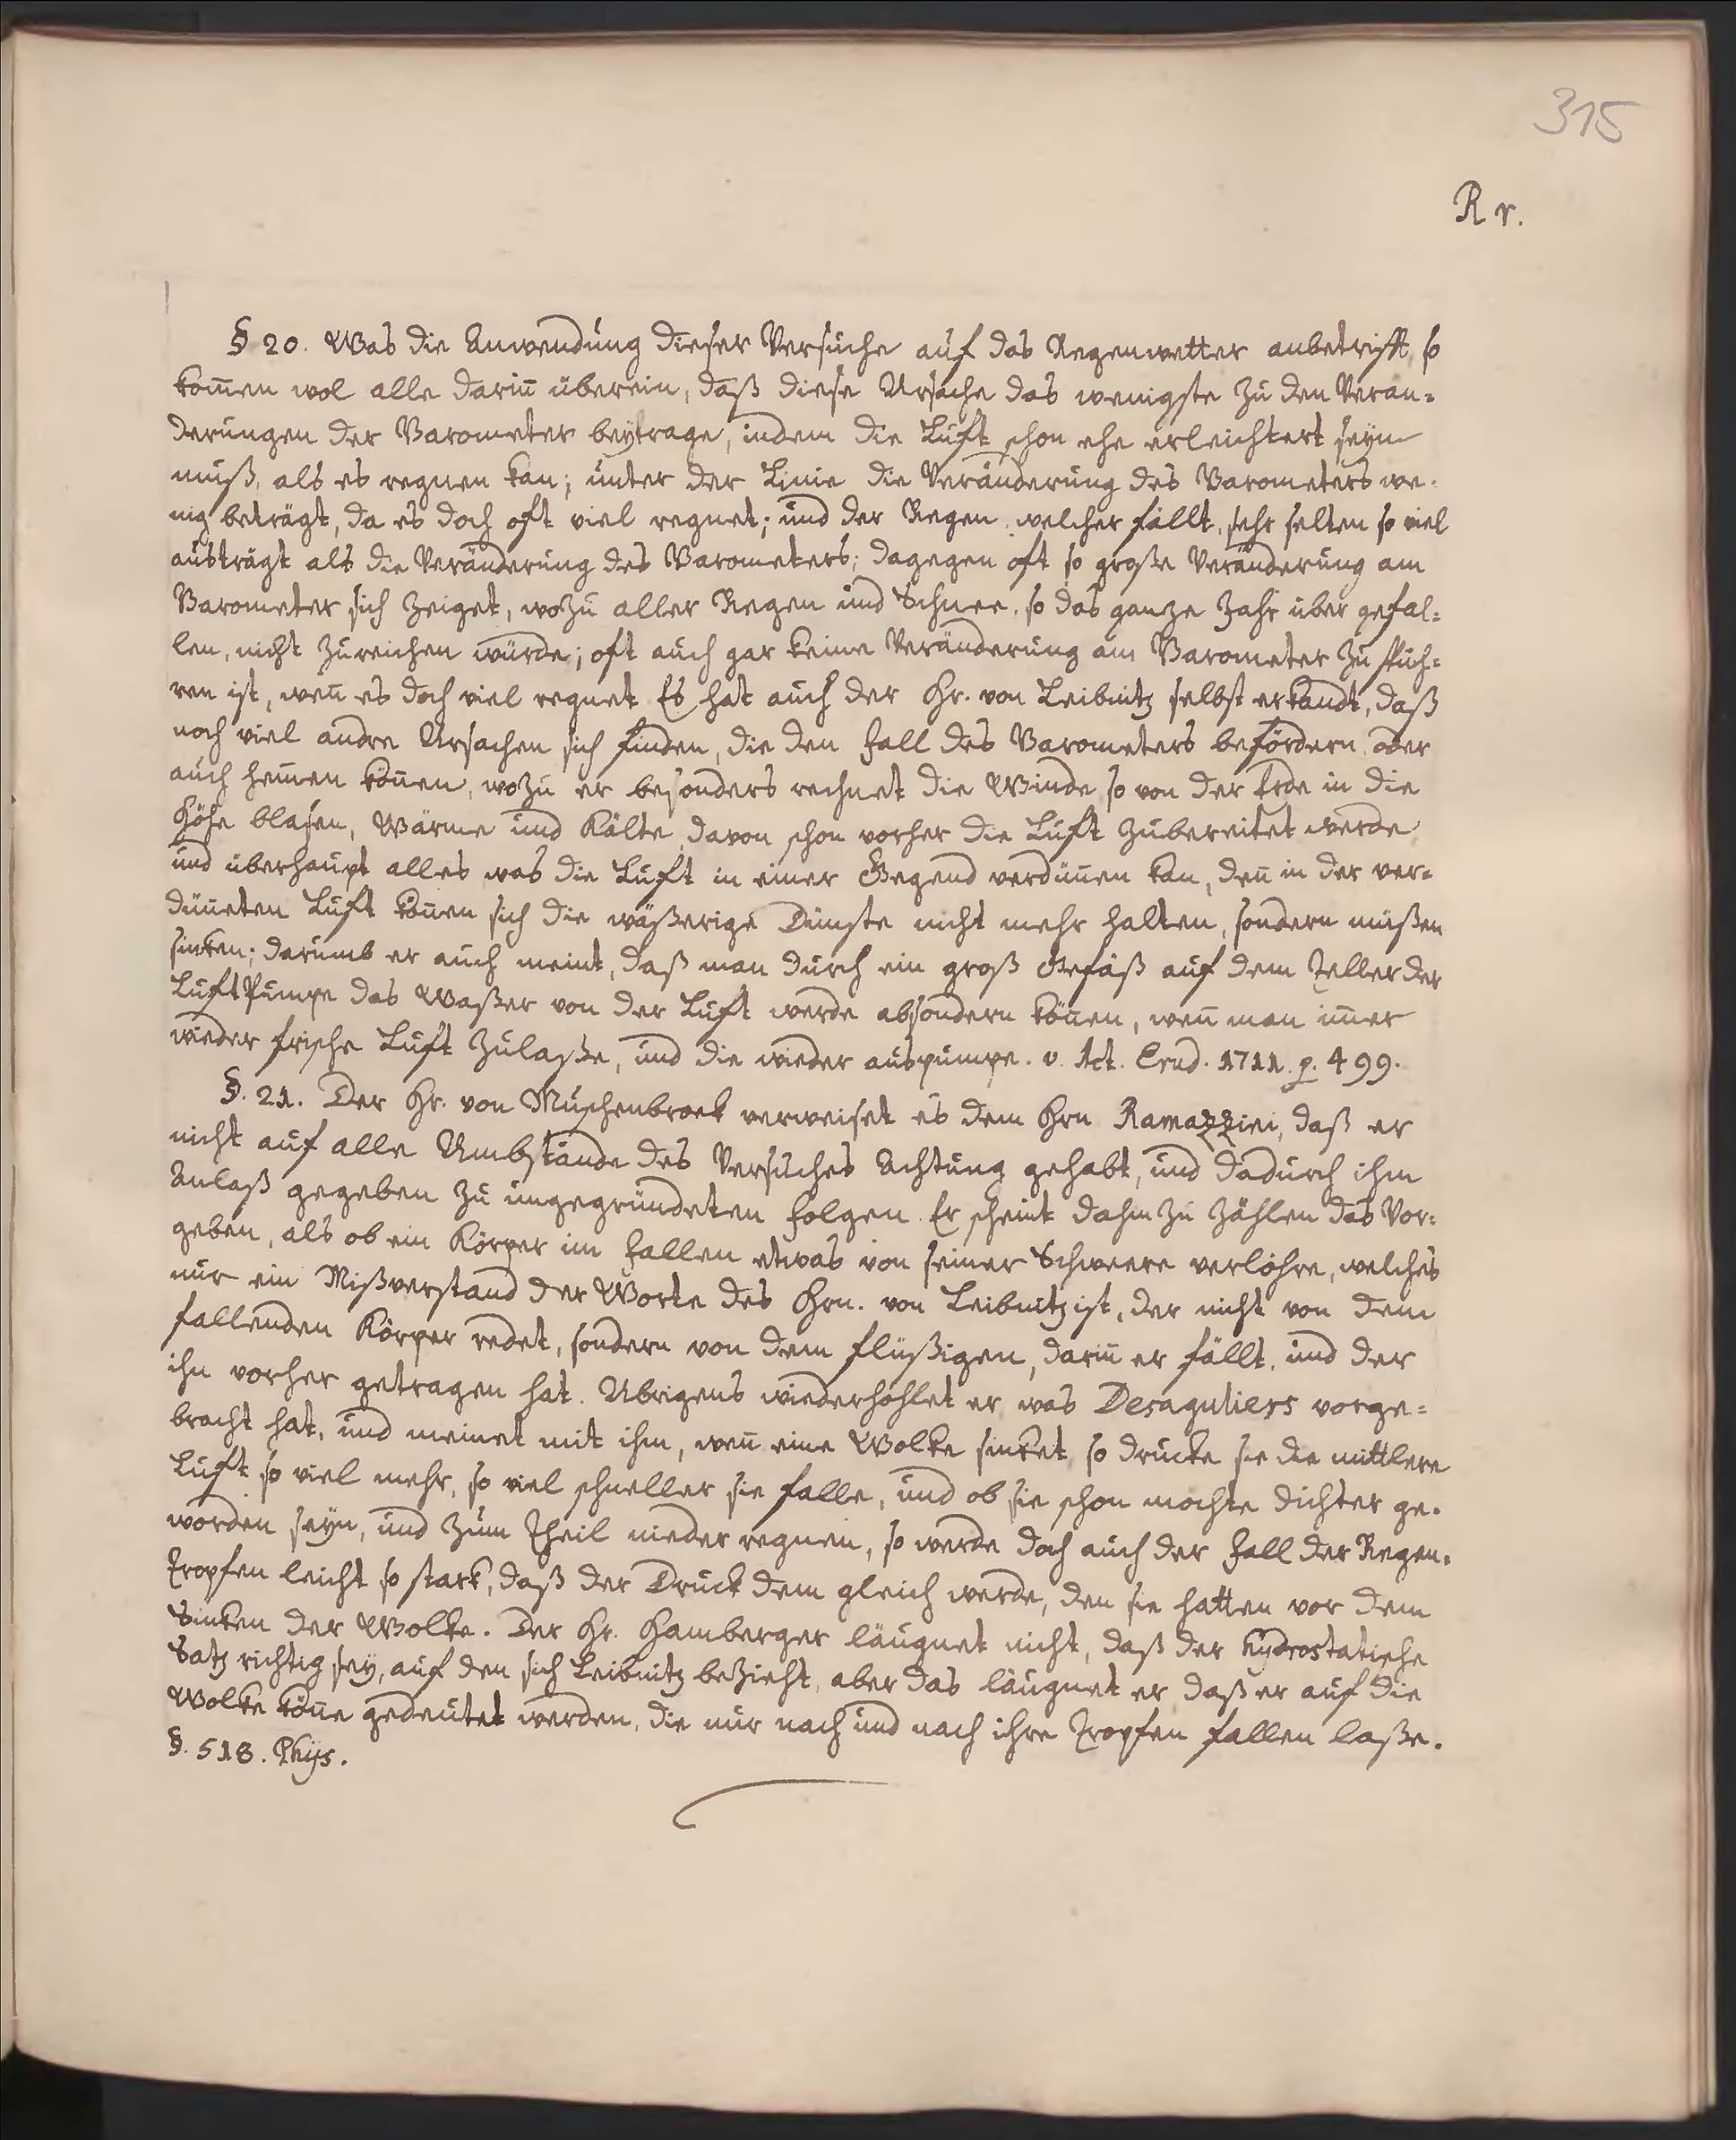 315
R r.
§ 20. Was die Anwendung dieser Versuche auf das Regenwetter anbetrifft, so
kom̅en wol alle darin̅ überein, daß diese Ursache das wenigste zu den Veran=
derungen der Barometer beytrage, indem die Luft schon ehe erleichtert seyn
muß, als es regnen kan; unter der Linie die Veränderung des Barometers we=
nig beträgt, da es doch oft viel regnet; und der Regen, welcher fällt, sehr selten so viel
austrägt als die Veränderung des Barometers; dagegen oft so große Veränderung am
Barometer sich zeiget, wozu aller Regen und Schnee, so das ganze Jahr über gefal=
len, nicht zureichen würde; oft auch gar keine Veränderung am Barometer zu spüh=
ren ist, wen̅ es doch viel regnet. Es hat auch der Hr. von Leibnitz selbst erkandt, daß
noch viel andre Ursachen sich finden, die den Fall des Barometers befördern oder
auch hem̅en kön̅en, wozu er besonders rechnet die Winde so von der Erde in die
Höhe blasen, Wärme und Kälte, davon schon vorher die Luft zubereitet werde
und überhaupt alles was die Luft in einer Gegend verdün̅en kan, den̅ in der ver=
dün̅eten Luft kön̅en sich die wäßerige Dünste nicht mehr halten, sondern müßen
sinken; darumb er auch meint, daß man durch ein groß Gefäß auf dem Teller der
LuftPumpe das Waßer von der Luft werde absondern kön̅en, wen̅ man im̅er
wieder frische Luft zulaße, und die wieder auspumpe. v. Act. Erud. 1711. p. 499.
§. 21. Der Hr. von Muschenbroek verweiset es dem Hrn Ramazzini, daß er
nicht auf alle Umbstände des Versuches Achtung gehabt, und dadurch ihm
Anlaß gegeben zu ungegründeten Folgen. Er scheint dahin zu zählen das Vor=
geben, als ob ein Körper im Fallen etwas von seiner Schweere verlöhre, welches
nur ein Mißverstand der Worte des Hrn. von Leibnitz ist, der nicht von dem
fallenden Körper redet, sondern von dem flüßigen, darin̅ er fällt, und der
ihn vorher getragen hat. Ubrigens wiederhohlet er was Desaguliers vorge=
bracht hat, und meinet mit ihm, wen̅ eine Wolke sinket, so drucke sie die mittlere
Luft so viel mehr, so viel schneller sie falle, und ob sie schon mochte dichter ge=
worden seyn, und zum Theil nieder regnen, so werde doch auch der Fall der Regen=
tropfen leicht so stark, daß der Druck dem gleich werde, den sie hatten vor dem
Sinken der Wolke. Der Hr. Hamberger läugnet nicht, daß der hydrostatische
Satz richtig sey, auf den sich Leibnitz bezieht, aber das läugnet er daß er auf die
Wolke kön̅e gedeutet werden, die nur nach und nach ihre Tropfen fallen laße.
§. 518. Phys.